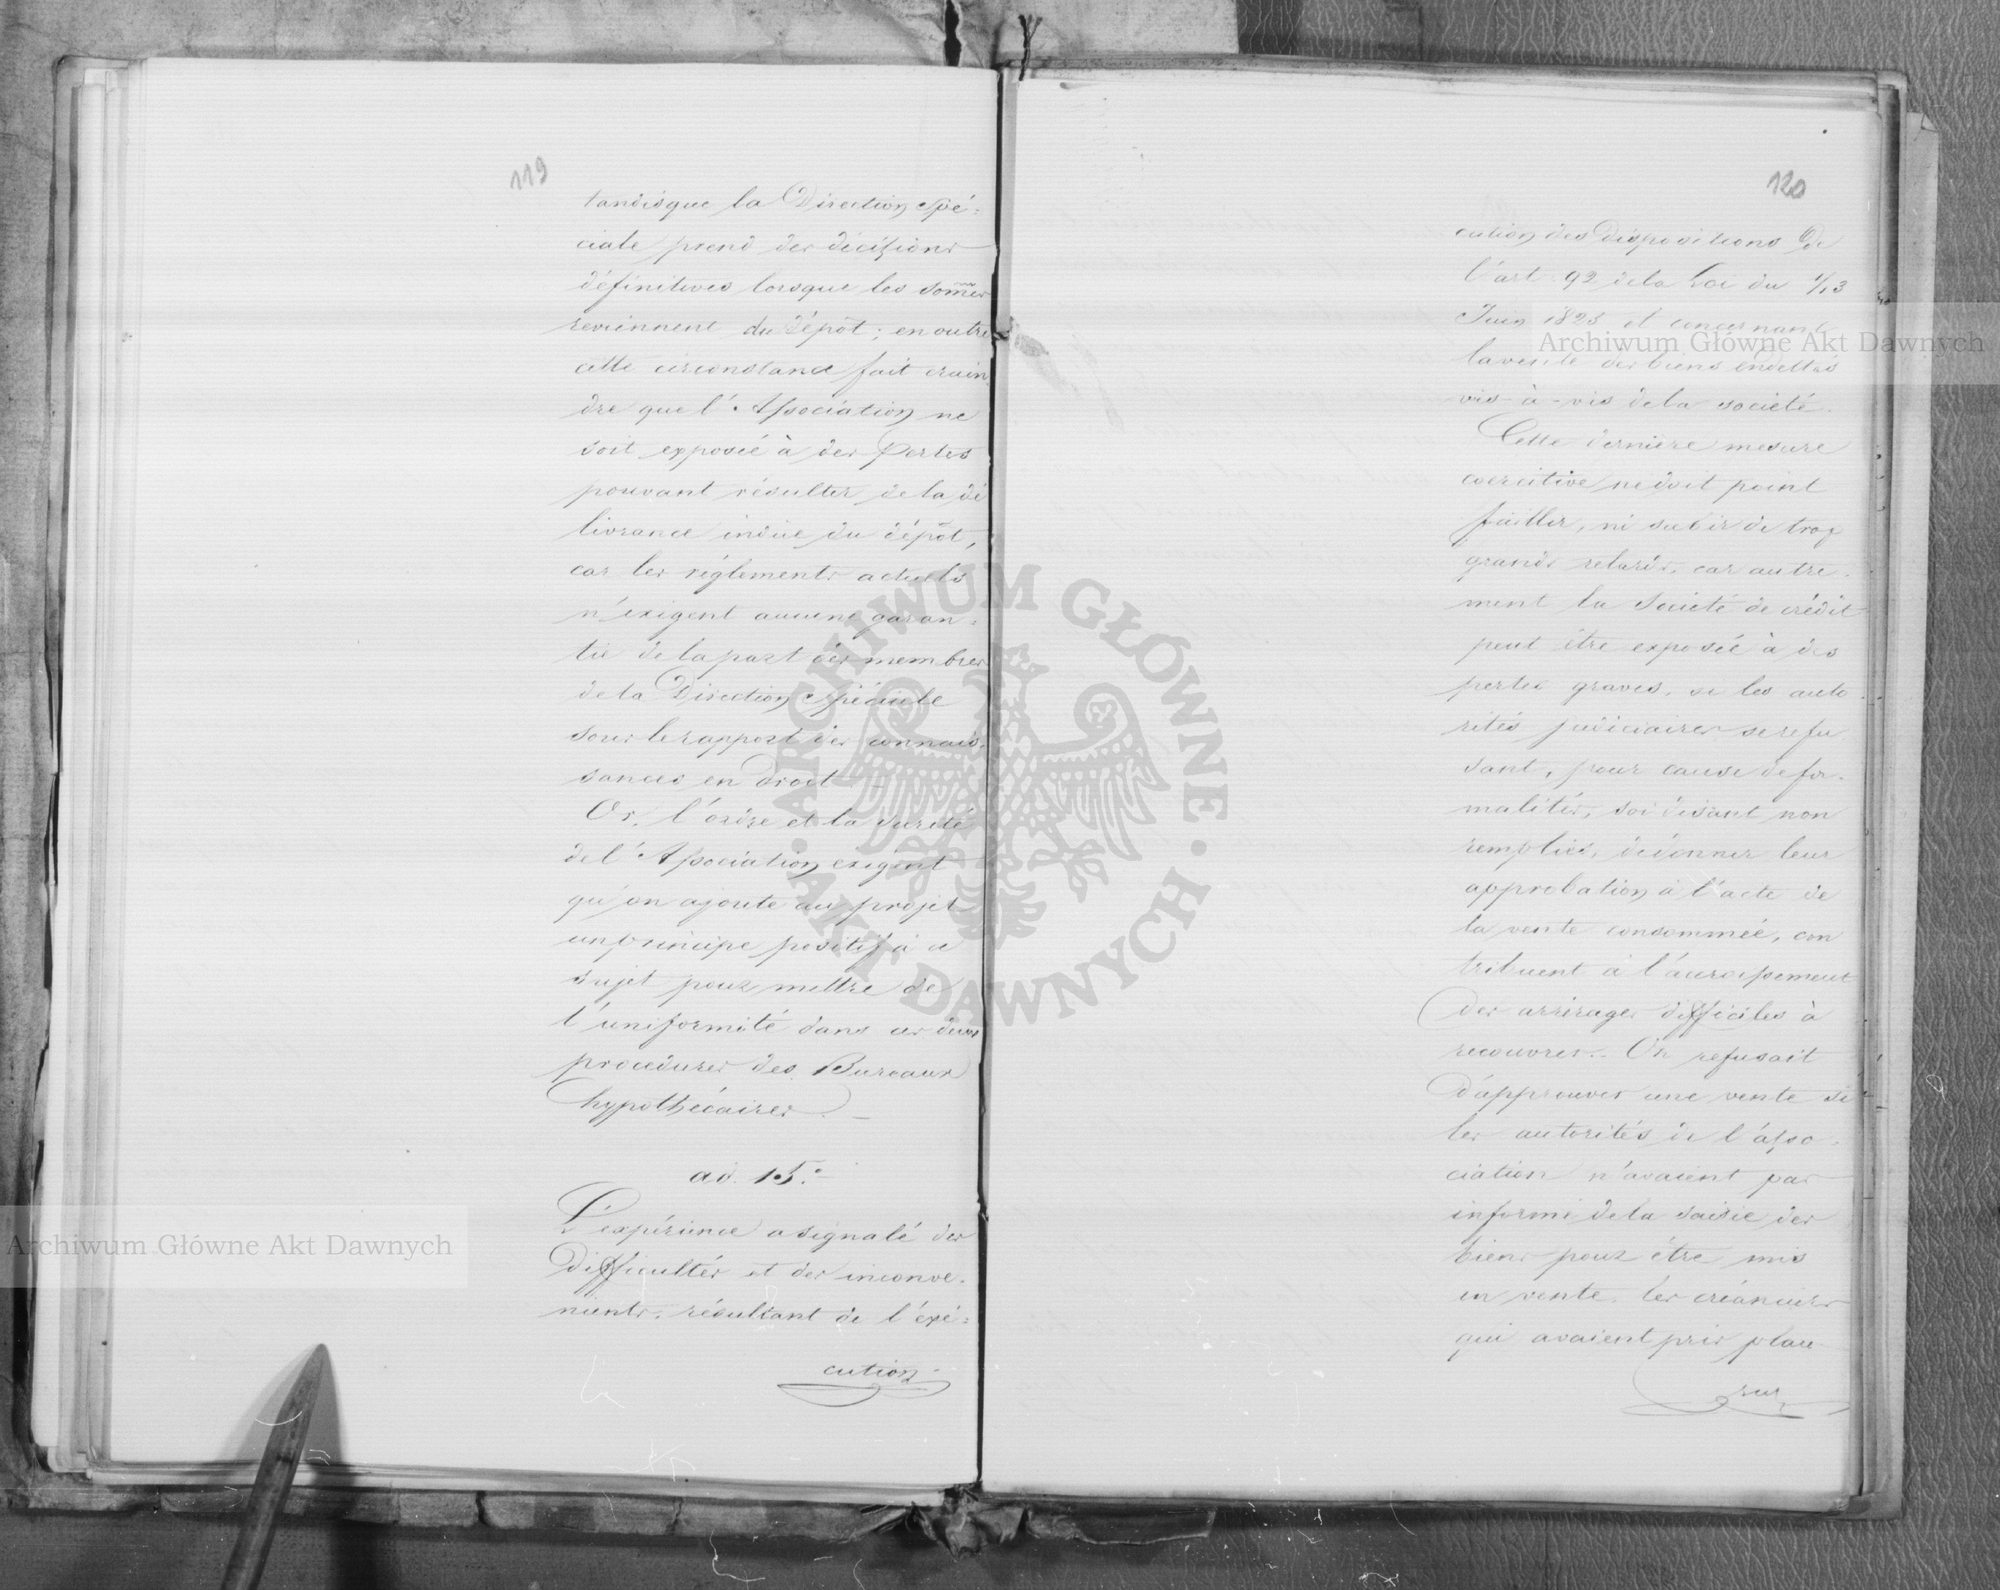 119
tandisque la Direction Spé-
ciale prend des décisions
définitives lorsque les sommes
reviennent du dépôt; en outre
cette circonstance fait crain-
dre que l'Association ne
soit exposée à des Pertes
pouvant résulter de la dé
livrance indûe du dépôt,
car les réglements actuels
n'exigent aucune garan-
tie de la part des membres
de la Direction Spéciale
sous le rapport des connais-
sances en droit —
Or, l'ordre et la sureté
de l'Association exigent
qu'on ajoute au projet
un principe positif à ce
sujet pour mettre de
l'uniformité dans ces deux
procedures des Bureaux
hypothécaires. —
ad. 15.
L'expérience a signalé des
Difficultés et des inconve-
nients, résultant de l'exé-
cution
120
cution des Dispositions de
l'art 92 de la Loi du 1/13
Juin 1825 et concernant
la vente des biens endettés
vis-à-vis de la société.
Cette dernière mesure
coercitive ne doit point
faillir, ni subir de trop
grands retards, car autre-
ment la Société de crédit
peut être exposée à des
pertes graves, si les auto
rités judiciaires se refu
sant, pour cause de for-
malités, soi disant non
remplies, de donner leur
approbation à l'acte de
la vente consommée, con
tribuent à l'accroissement
des arrérages difficiles à
recouvrer. On refusait
d'approuver une vente si
les autorités de l'asso-
ciation n'avaient pas
informé de la saisie des
biens pour être mis
en vente, les créanciers
qui avaient pris place
sur
Archiwum Główne Akt Dawnych
Archiwum Główne Akt Dawnych
ARCHIWUM GŁÓWNE
AKT DAWNYCH